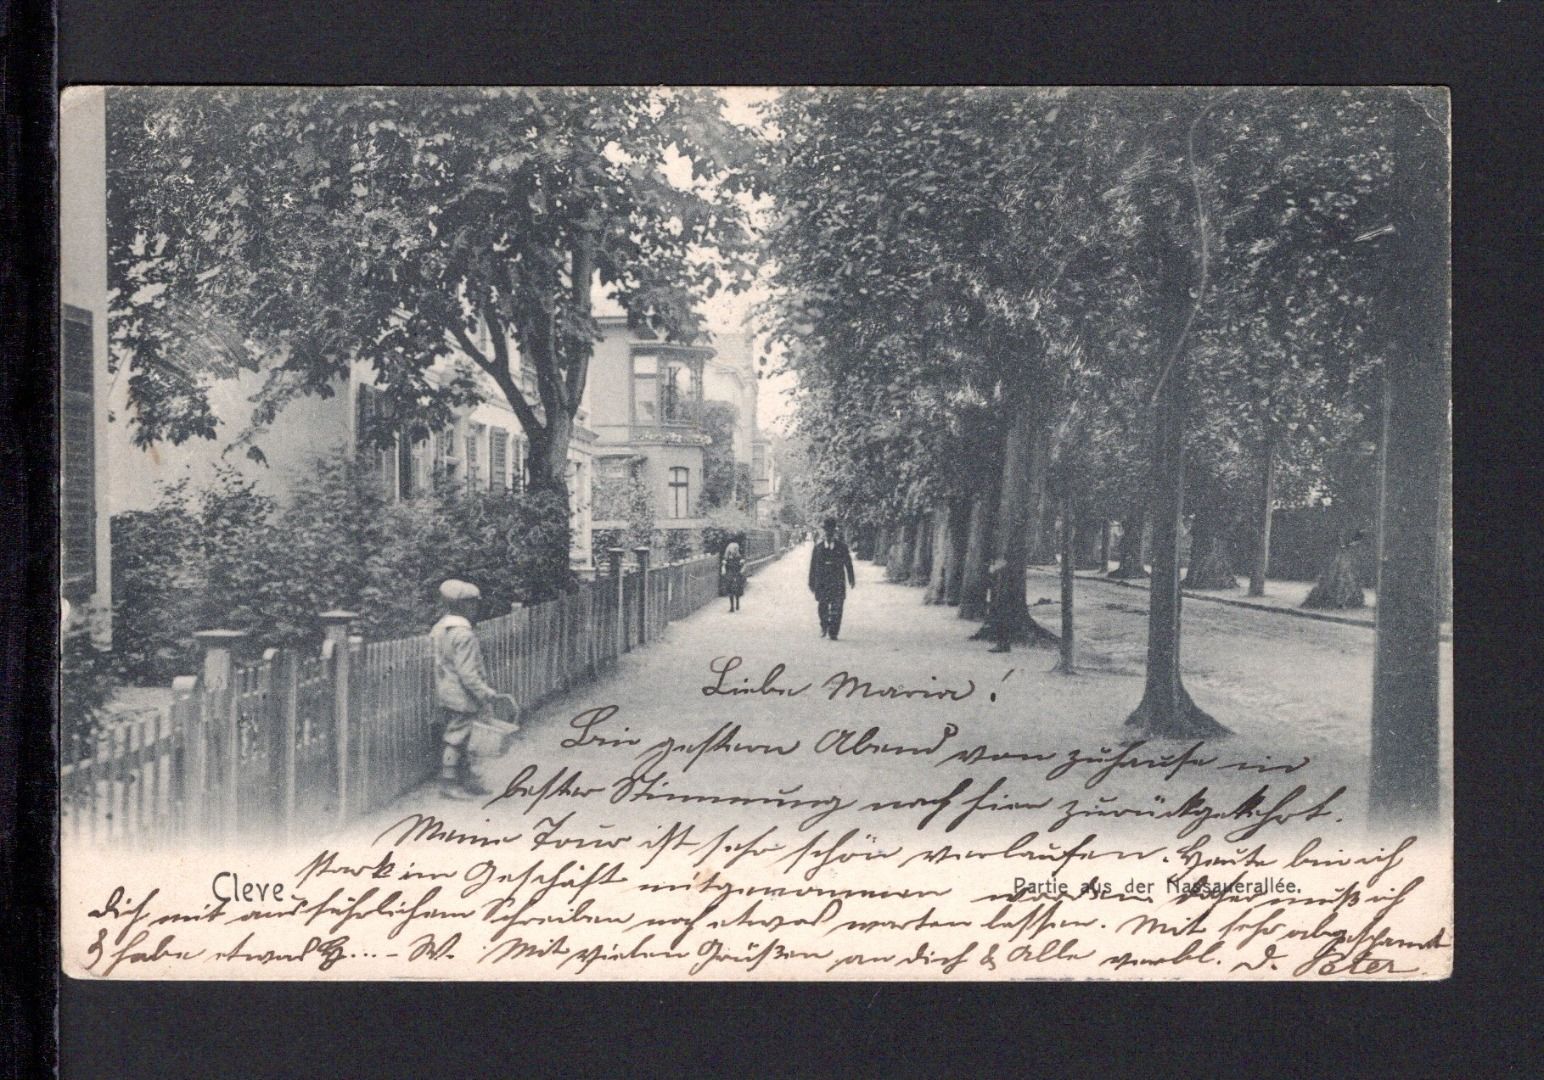 Liebe Maria!
Bin gestern Abend von zuhause in
bester Stimmung nach hier zurückgekehrt.
Meine Tour ist sehr schön verlaufen. Heute bin ich
stark im Geschäft mitgenommen worden, daher muß ich
Cleve
Partie aus der Nassauerallée.
Dich mit ausführlichem Schreiben noch etwas warten lassen. Mit sehr abgespannt
& habe etwas H... - W. Mit vielen Grüßen an dich & Alle verbl. D. Peter